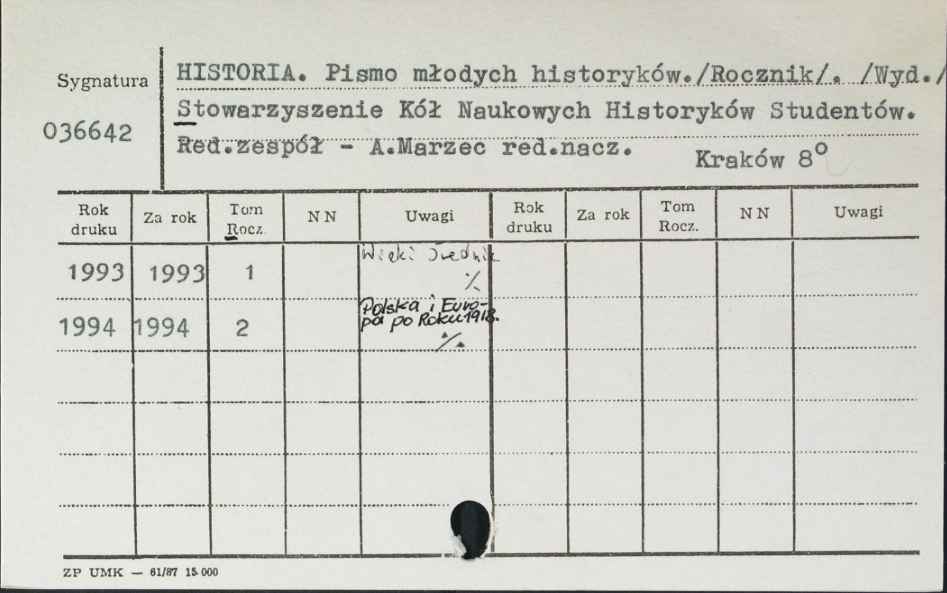 Sygnatura
036642
HISTORIA. Pismo młodych historyków./Rocznik/. /Wyd./
Stowarzyszenie Kół Naukowych Historyków Studentów.
Red.zespół - A.Marzec red.nacz.
Kraków 8°
Rok druku Za rok Tom Rocz. NN Uwagi Rok druku Za rok Tom Rocz. NN Uwagi
1993 1993 1 Wieki Średnie
·/.
1994 1994 2 Polska i Euro-
pa po Roku 1918.
·/.
ZP UMK — 61/87 15 000